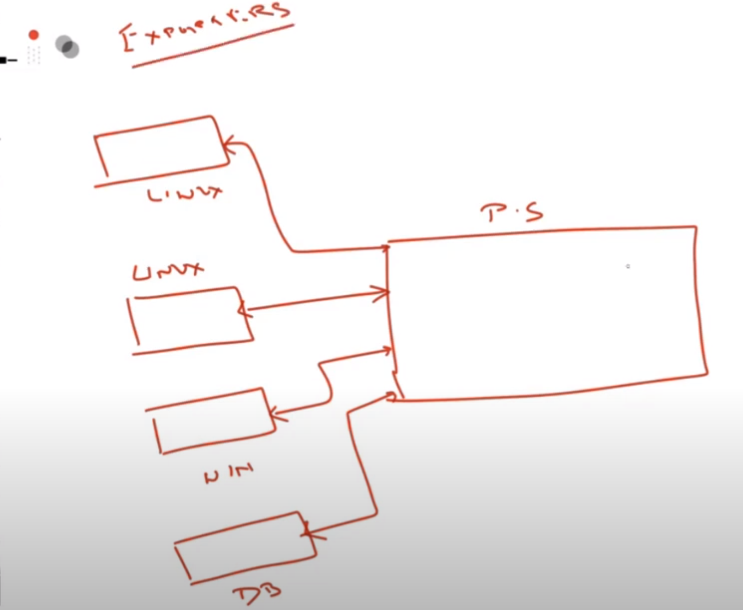 Exporters
LINUX
P.S
LINUX
WIN
DB